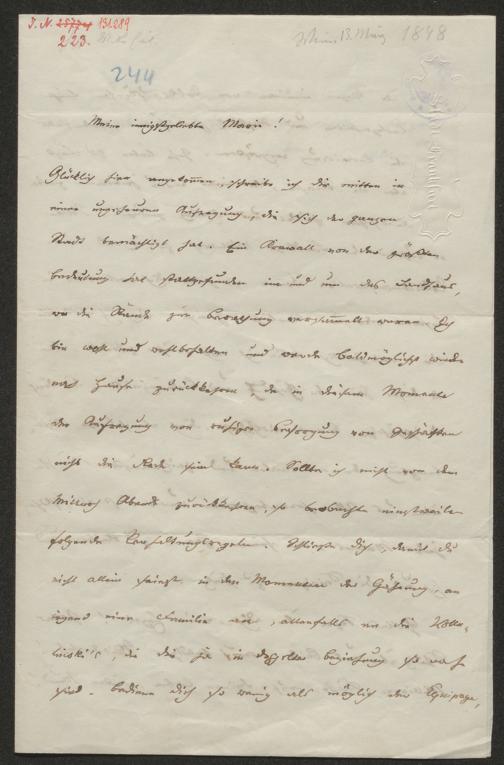 I. N. 25774 131.289
223.
Wien 13. März 1848
244
Meine innigstgeliebte Marie!
Glücklich hier angekommen, schreibe ich dir mitten in
einer ungeheuren Aufregung, die sich der ganzen
Stadt bemächtigt hat. Ein Krawall von der größten
Bedeutung hat stattgefunden in und um das Landhaus,
wo die Stände zur Berathung versammelt waren. Ich
bin wohl und wohlbehalten und werde baldmöglichst wieder
nach Hause zurückkehren, da in diesem Momente
der Aufregung von ruhiger Besorgung von Geschäften
nicht die Rede sein kann. Sollte ich nicht vor dem
Mittwoch Abends zurückkehren, so beobachte einstweilen
folgende Verhaltungsregeln. Schließe dich, damit du
nicht allein seiest in den Momenten der Gährung, an
irgend eine Familie an, allenfalls an die
die dir ja in doppelter Beziehung so nah
sind. Bediene dich so wenig als möglich der Equipage,